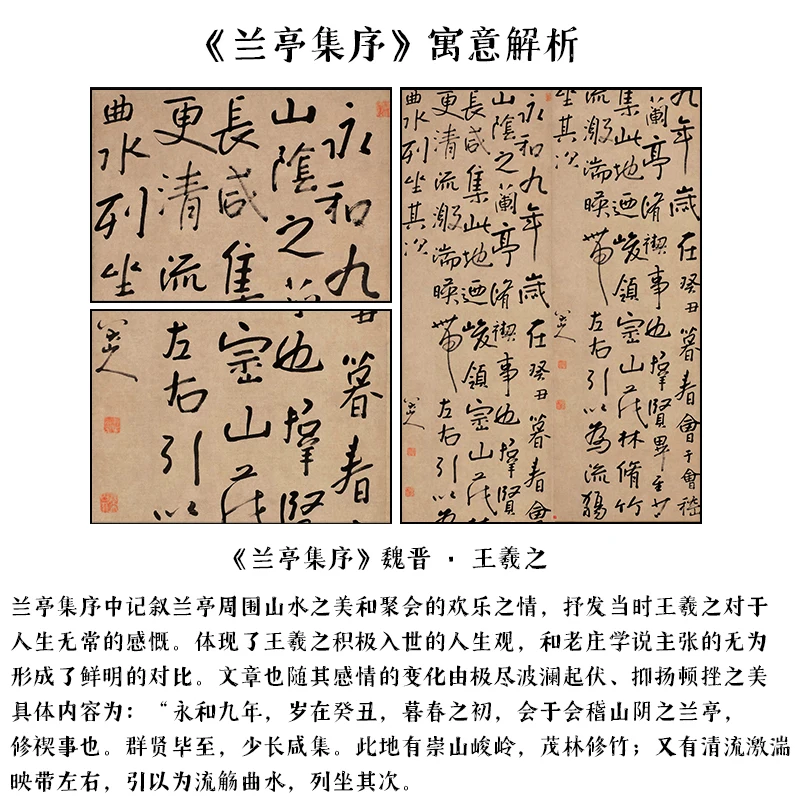 《兰亭集序》寓意解析
永和九
山陰之
長咸集
更清流
曲水列坐
丑暮春
也羣賢
崇山茂
左右引以
八大山人
九年歲在癸丑暮春會于會稽
蘭亭脩禊事也羣賢畢至少
集此地迺峻領崇山茂林脩竹
流激湍暎帶左右引以為流觴
坐其次
八大山人
永和九年歲在癸丑暮春
山陰之蘭亭脩禊事也羣賢
長咸集此地迺峻領崇山茂
更清流激湍暎帶左右引以
曲水列坐其次
八大山人
《兰亭集序》魏晋 · 王羲之
兰亭集序中记叙兰亭周围山水之美和聚会的欢乐之情，抒发当时王羲之对于
人生无常的感慨。体现了王羲之积极入世的人生观，和老庄学说主张的无为
形成了鲜明的对比。文章也随其感情的变化由极尽波澜起伏、抑扬顿挫之美
具体内容为：“永和九年，岁在癸丑，暮春之初，会于会稽山阴之兰亭，
修禊事也。群贤毕至，少长咸集。此地有崇山峻岭，茂林修竹；又有清流激湍
映带左右，引以为流觞曲水，列坐其次。